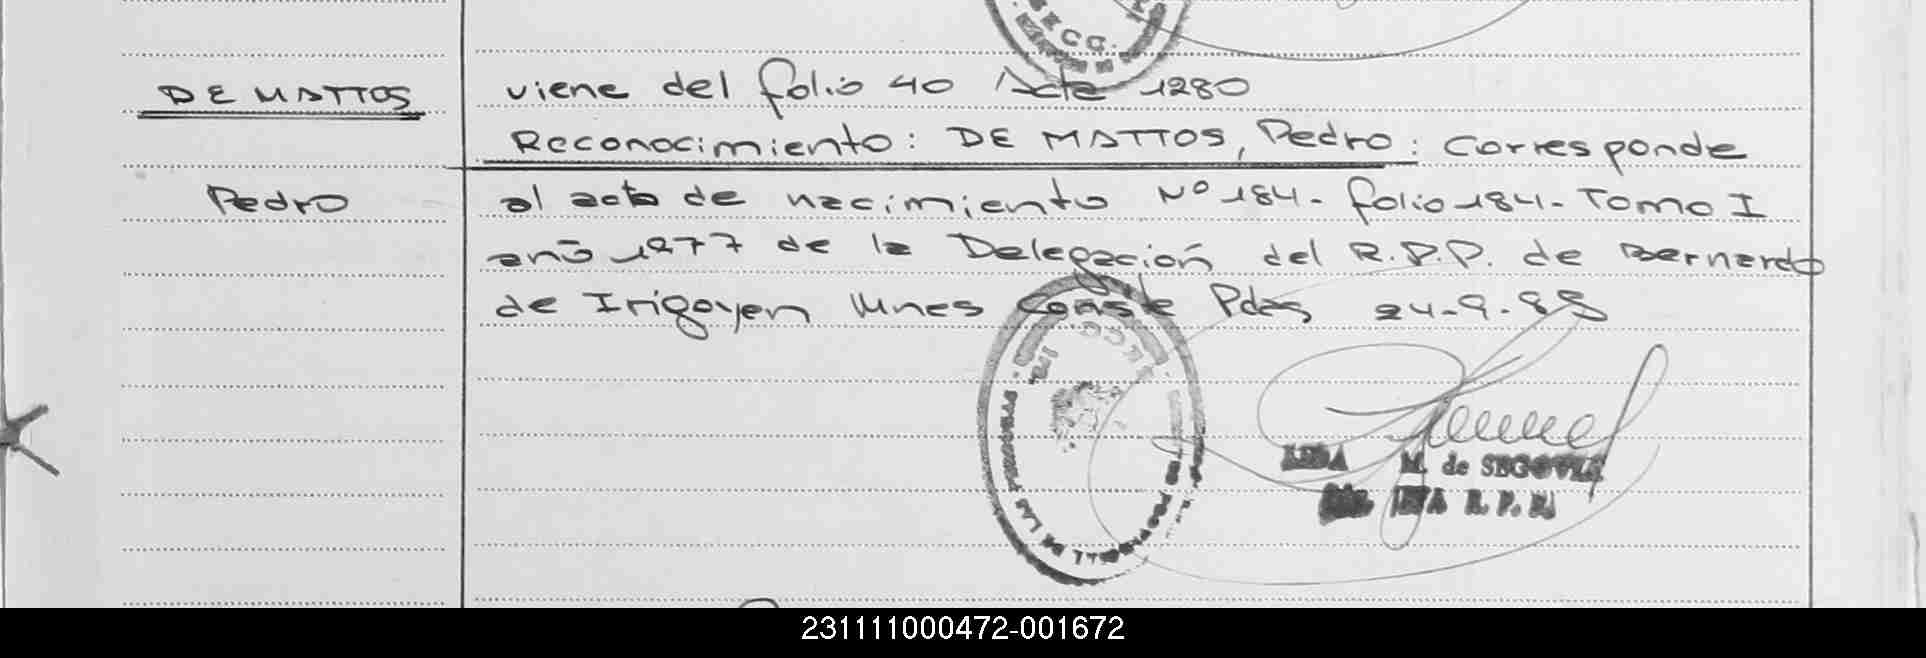 DE MATTOS
viene del folio 40 Acta 1280
Reconocimiento: DE MATTOS, Pedro: Corresponde
Pedro
al acta de nacimiento Nº 184. folio 184. Tomo I
año 1977 de la Delegación del R.P.P. de Bernardo
de Irigoyen Mnes Conste Pdas 24-9-85
M. de SEGOVIA
R. P. P.
231111000472-001672